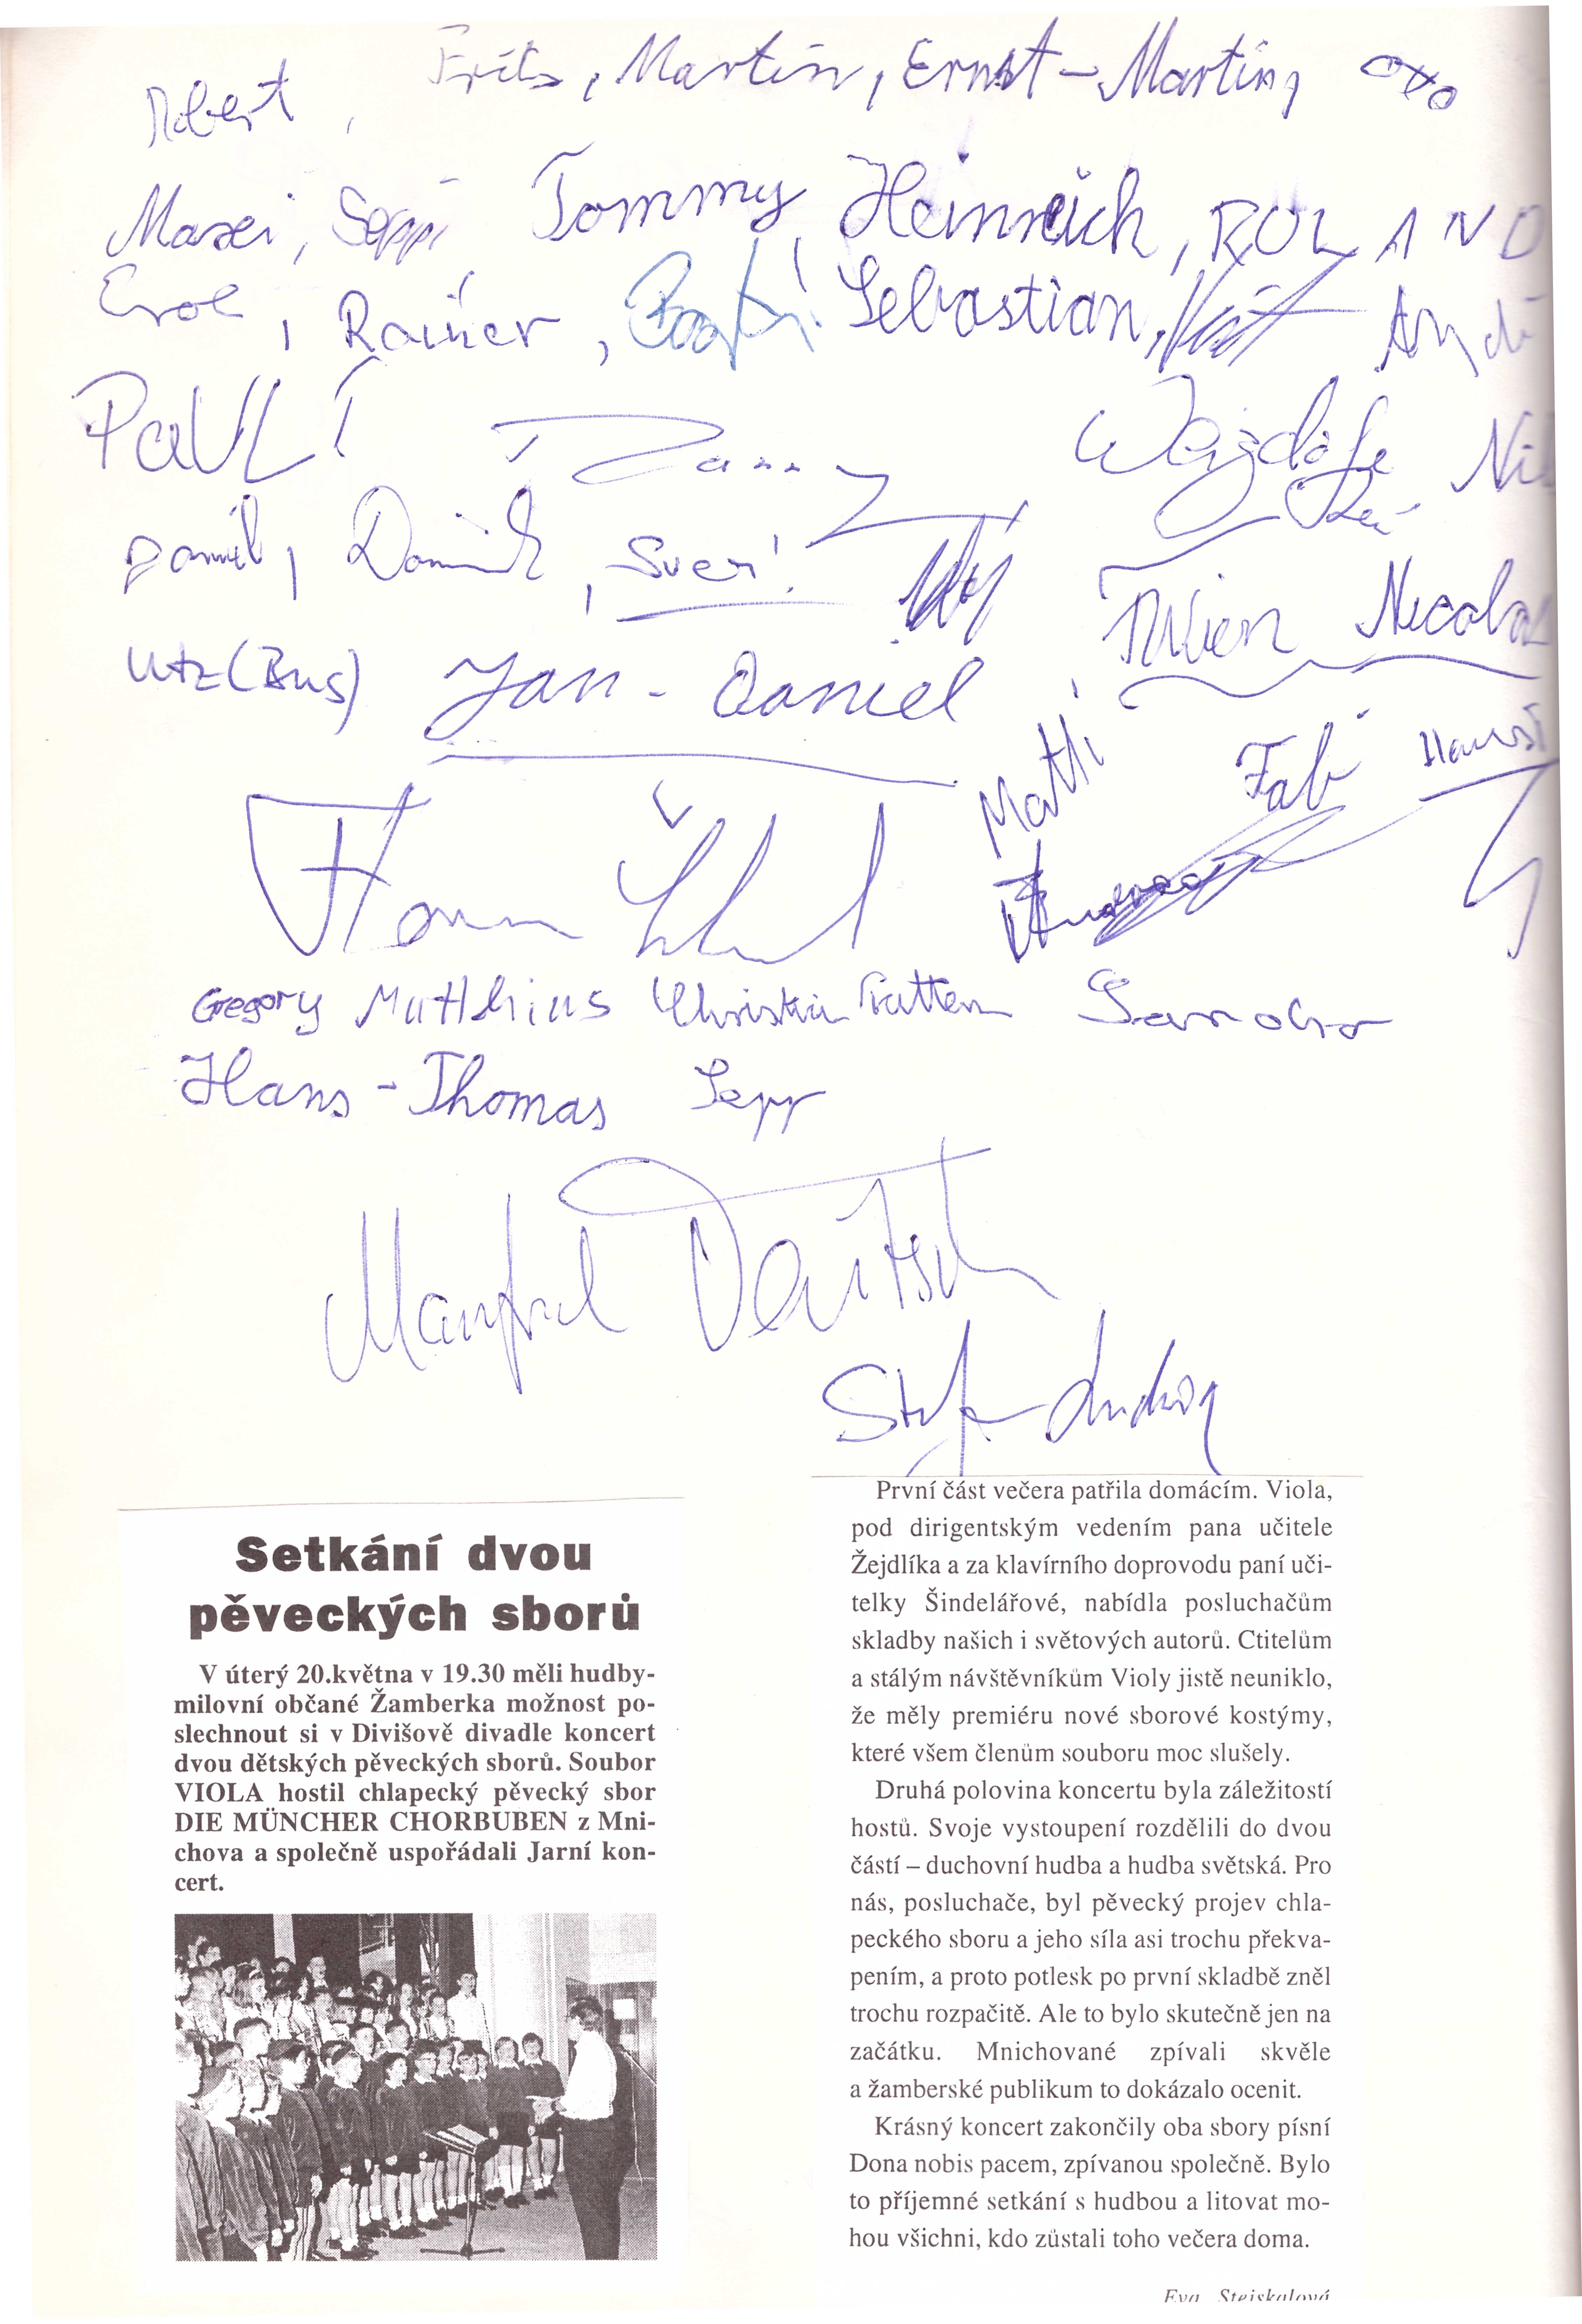 Robert, Frits, Martin, Ernst-Martin, Otto
Seppi Tommy, Heinreich, ROLAND
Erol, Rainer, Sebastian, Veit Andi
PaULI Danny
Daniel, Dominik, Sveni
Utz (Bus) Jan-Daniel, Nicolas
Matthi Fabi Hansi
Gregory Matthias Christian Sandro
Hans-Thomas Sepp
Manfred
Stefan Ludwig
Setkání dvou
pěveckých sborů
V úterý 20.května v 19.30 měli hudby-
milovní občané Žamberka možnost po-
slechnout si v Divišově divadle koncert
dvou dětských pěveckých sborů. Soubor
VIOLA hostil chlapecký pěvecký sbor
DIE MÜNCHER CHORBUBEN z Mni-
chova a společně uspořádali Jarní kon-
cert.
První část večera patřila domácím. Viola,
pod dirigentským vedením pana učitele
Žejdlíka a za klavírního doprovodu paní uči-
telky Šindelářové, nabídla posluchačům
skladby našich i světových autorů. Ctitelům
a stálým návštěvníkům Violy jistě neuniklo,
že měly premiéru nové sborové kostýmy,
které všem členům souboru moc slušely.
Druhá polovina koncertu byla záležitostí
hostů. Svoje vystoupení rozdělili do dvou
částí – duchovní hudba a hudba světská. Pro
nás, posluchače, byl pěvecký projev chla-
peckého sboru a jeho síla asi trochu překva-
pením, a proto potlesk po první skladbě zněl
trochu rozpačitě. Ale to bylo skutečně jen na
začátku. Mnichované zpívali skvěle
a žamberské publikum to dokázalo ocenit.
Krásný koncert zakončily oba sbory písní
Dona nobis pacem, zpívanou společně. Bylo
to příjemné setkání s hudbou a litovat mo-
hou všichni, kdo zůstali toho večera doma.
Eva Stejskalová